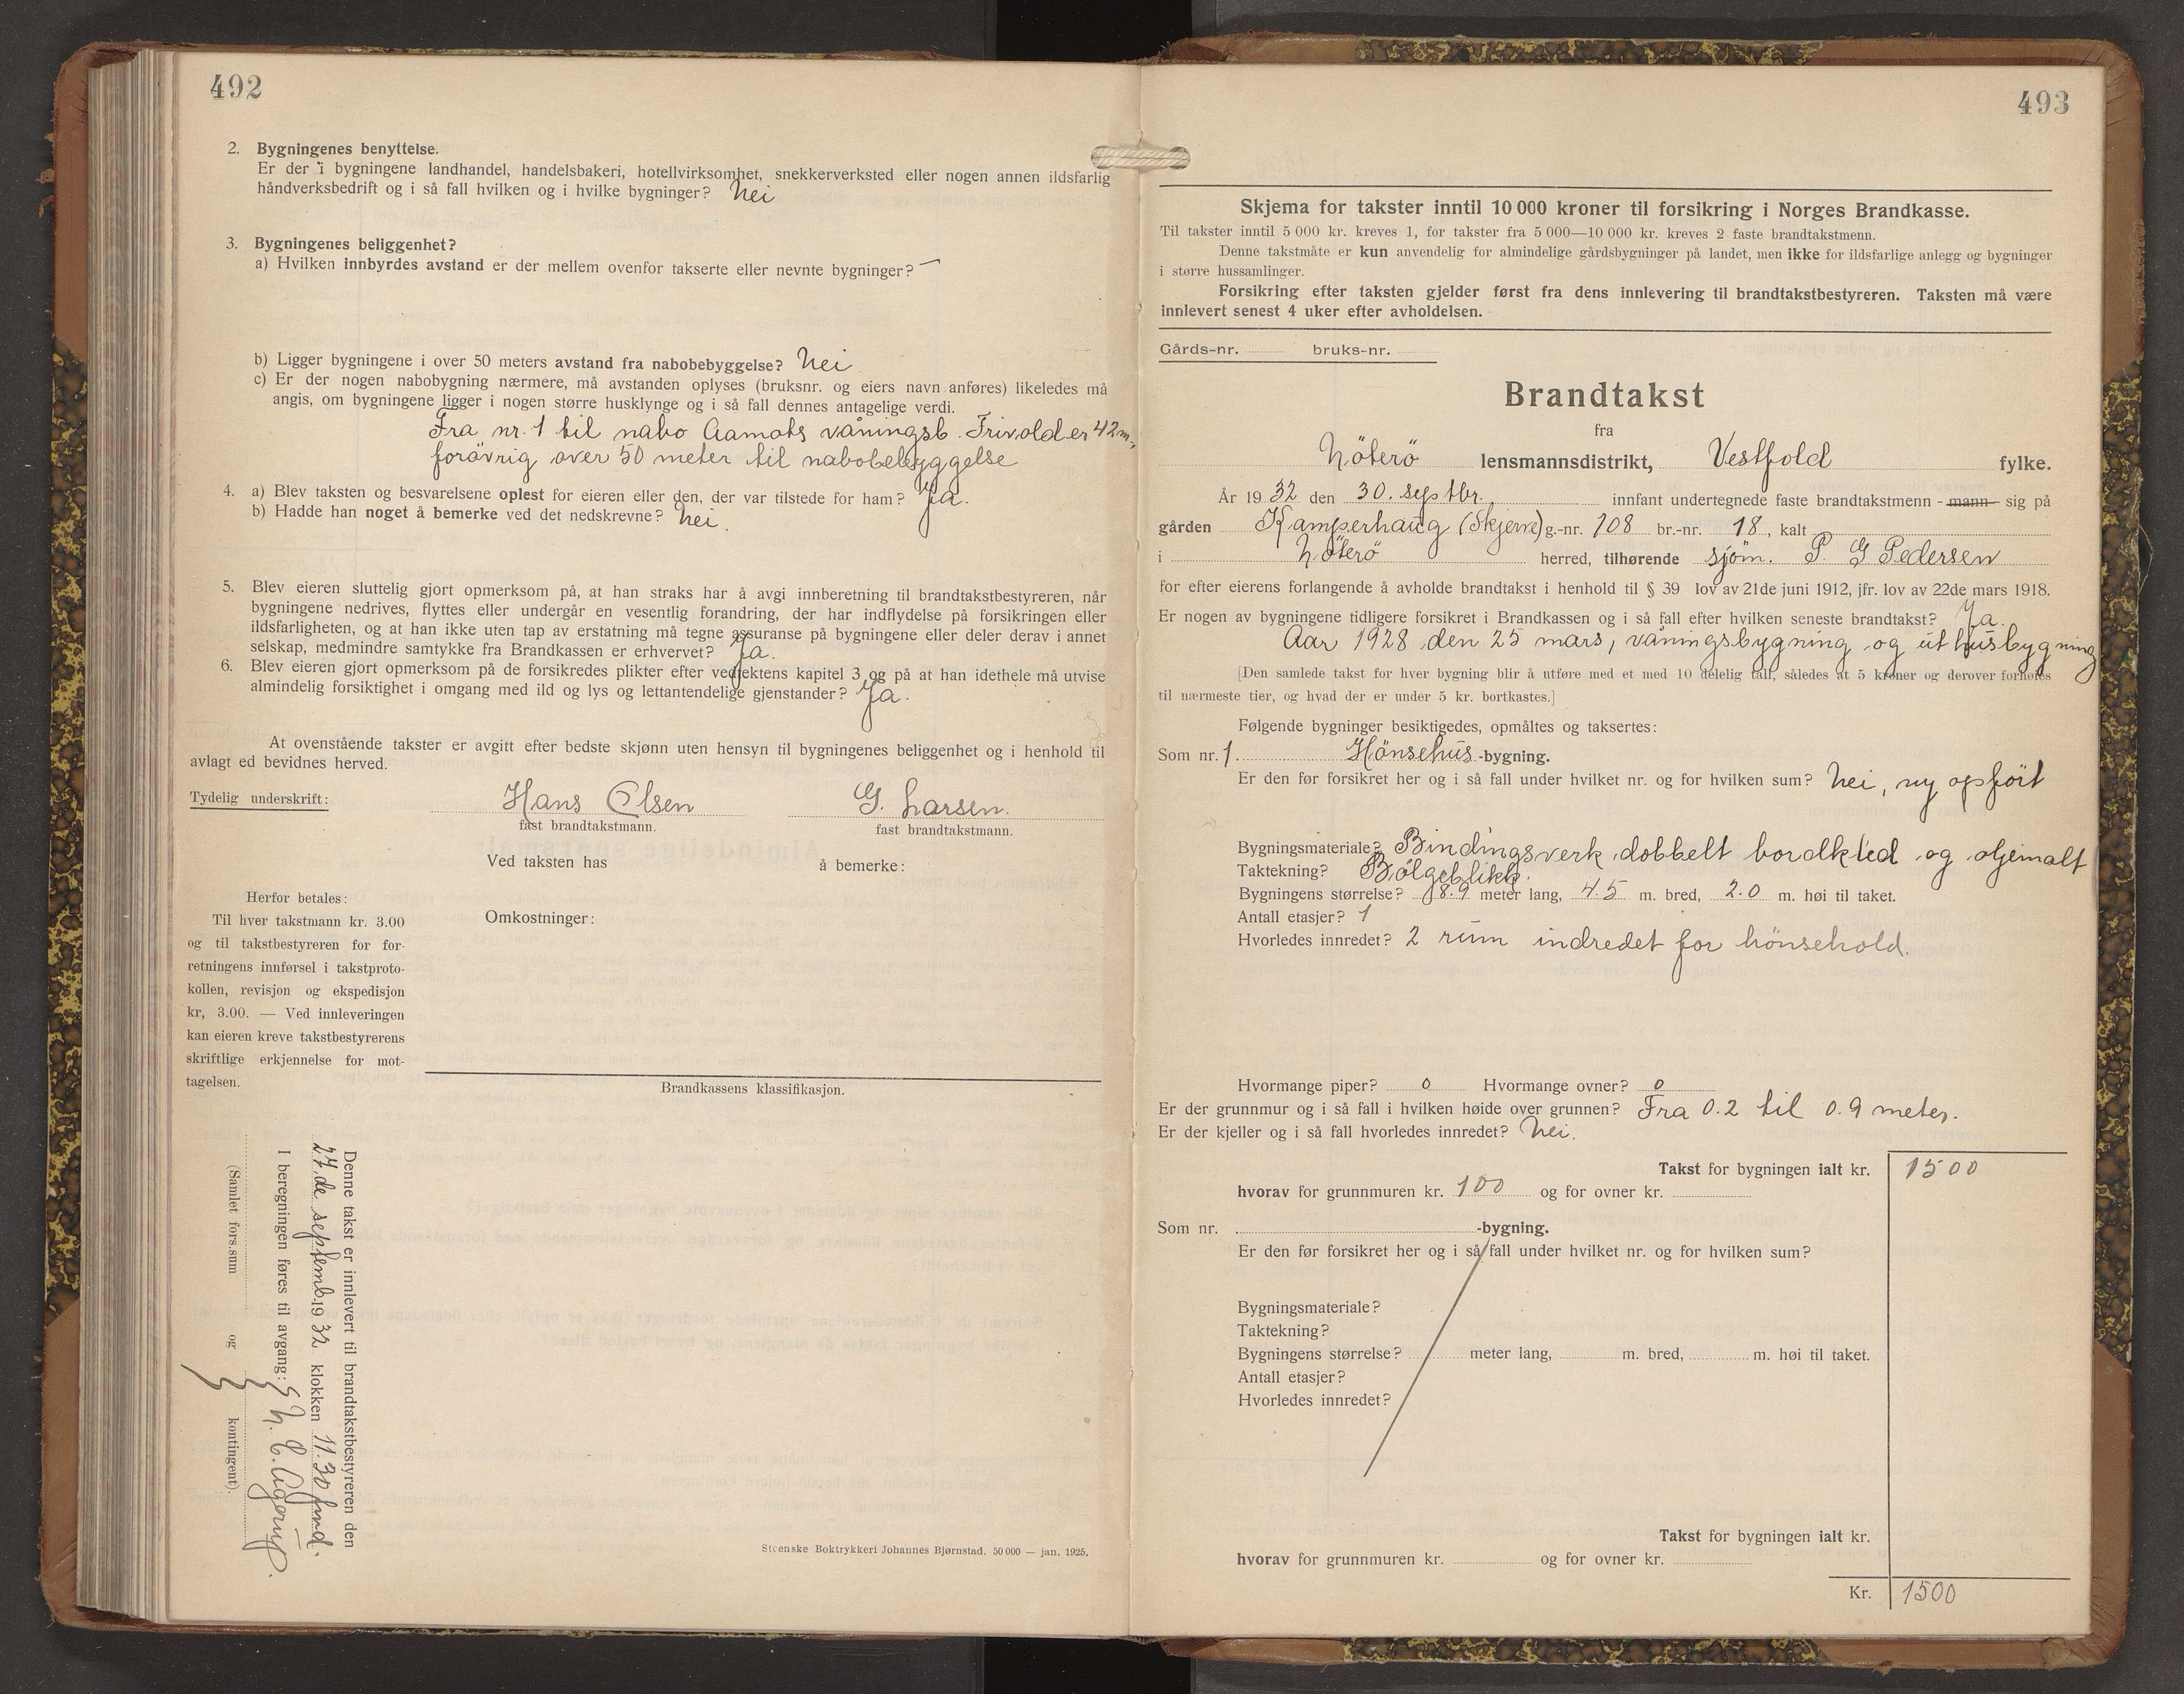 492
2. Bygningenes benyttelse.
Er der i bygningene landhandel, handelsbakeri, hotellvirksomhet, snekkerverksted eller nogen annen ildsfarlig
håndverksbedrift og i så fall hvilken og i hvilke bygninger? Nei
3. Bygningenes beliggenhet?
a) Hvilken innbyrdes avstand er der mellem ovenfor takserte eller nevnte bygninger? —
b) Ligger bygningene i over 50 meters avstand fra nabobebyggelse? Nei
c) Er der nogen nabobygning nærmere, må avstanden oplyses (bruksnr. og eiers navn anføres) likeledes må
angis, om bygningene ligger i nogen større husklynge og i så fall dennes antagelige verdi.
Fra nr. 1 til nabo Aamots våningsb. Frivold er 42 m.,
forövrig over 50 meter til nabobebyggelse
4. a) Blev taksten og besvarelsene oplest for eieren eller den, der var tilstede for ham? Ja.
b) Hadde han noget å bemerke ved det nedskrevne? Nei.
5. Blev eieren sluttelig gjort opmerksom på, at han straks har å avgi innberetning til brandtakstbestyreren, når
bygningene nedrives, flyttes eller undergår en vesentlig forandring, der har indflydelse på forsikringen eller
ildsfarligheten, og at han ikke uten tap av erstatning må tegne assuranse på bygningene eller deler derav i annet
selskap, medmindre samtykke fra Brandkassen er erhvervet? Ja.
6. Blev eieren gjort opmerksom på de forsikredes plikter efter vedtektens kapitel 3 og på at han idethele må utvise
almindelig forsiktighet i omgang med ild og lys og lettantendelige gjenstander? Ja.
At ovenstående takster er avgitt efter bedste skjønn uten hensyn til bygningenes beliggenhet og i henhold til
avlagt ed bevidnes herved.
Tydelig underskrift: Hans Olsen G. Larsen.
fast brandtakstmann. fast brandtakstmann.
Ved taksten has å bemerke:
Herfor betales:
Til hver takstmann kr. 3.00
og til takstbestyreren for for-
retningens innførsel i takstproto-
kollen, revisjon og ekspedisjon
kr, 3.00. — Ved innleveringen
kan eieren kreve takstbestyrerens
skriftlige erkjennelse for mot-
tagelsen.
Omkostninger:
Brandkassens klassifikasjon.
Denne takst er innlevert til brandtakstbestyreren den
27. de septemb. 19 32 klokken 11.30 fmd.
I beregningen føres til avgang: N. C. Agerup.
(Samlet fors.sum og kontingent).
Steenske Boktrykkeri Johannes Bjørnstad. 50 000 — jan. 1925.
493
Skjema for takster inntil 10 000 kroner til forsikring i Norges Brandkasse.
Til takster inntil 5 000 kr. kreves 1, for takster fra 5 000—10 000 kr. kreves 2 faste brandtakstmenn.
Denne takstmåte er kun anvendelig for almindelige gårdsbygninger på landet, men ikke for ildsfarlige anlegg og bygninger
i større hussamlinger.
Forsikring efter taksten gjelder først fra dens innlevering til brandtakstbestyreren. Taksten må være
innlevert senest 4 uker efter avholdelsen.
Gårds-nr. bruks-nr.
Brandtakst
fra
Nöterö lensmannsdistrikt, Vestfold fylke.
År 19 32 den 30. septbr. innfant undertegnede faste brandtakstmenn - mann sig på
gården Kamperhaug (Skjerve) g.-nr. 108 br.-nr. 18, kalt
i Nöterö herred, tilhørende sjöm. P. G Pedersen
for efter eierens forlangende å avholde brandtakst i henhold til § 39 lov av 21de juni 1912, jfr. lov av 22de mars 1918.
Er nogen av bygningene tidligere forsikret i Brandkassen og i så fall efter hvilken seneste brandtakst? Ja.
Aar 1928 den 25 mars, våningsbygning og uthusbygning
[Den samlede takst for hver bygning blir å utføre med et med 10 delelig tall, således at 5 kroner og derover forhøies
til nærmeste tier, og hvad der er under 5 kr. bortkastes.]
Følgende bygninger besiktigedes, opmåltes og taksertes:
Som nr. 1. Hönsehus -bygning.
Er den før forsikret her og i så fall under hvilket nr. og for hvilken sum? Nei, ny opfört
Bygningsmateriale? Bindingsverk dobbelt bordkled og oljemalt
Taktekning? Bølgeblikk.
Bygningens størrelse? 8.9 meter lang, 4.5 m. bred, 2.0 m. høi til taket.
Antall etasjer? 1
Hvorledes innredet? 2 rum indredet for hönsehold.
Hvormange piper? 0 Hvormange ovner? 0
Er der grunnmur og i så fall i hvilken høide over grunnen? Fra 0.2 til 0.9 meter.
Er der kjeller og i så fall hvorledes innredet? Nei.
Takst for bygningen ialt kr. 1500
hvorav for grunnmuren kr. 100 og for ovner kr.
Som nr. -bygning.
Er den før forsikret her og i så fall under hvilket nr. og for hvilken sum?
Bygningsmateriale?
Taktekning?
Bygningens størrelse? meter lang, m. bred, m. høi til taket.
Antall etasjer?
Hvorledes innredet?
Takst for bygningen ialt kr.
hvorav for grunnmuren kr. og for ovner kr.
Kr. 1500